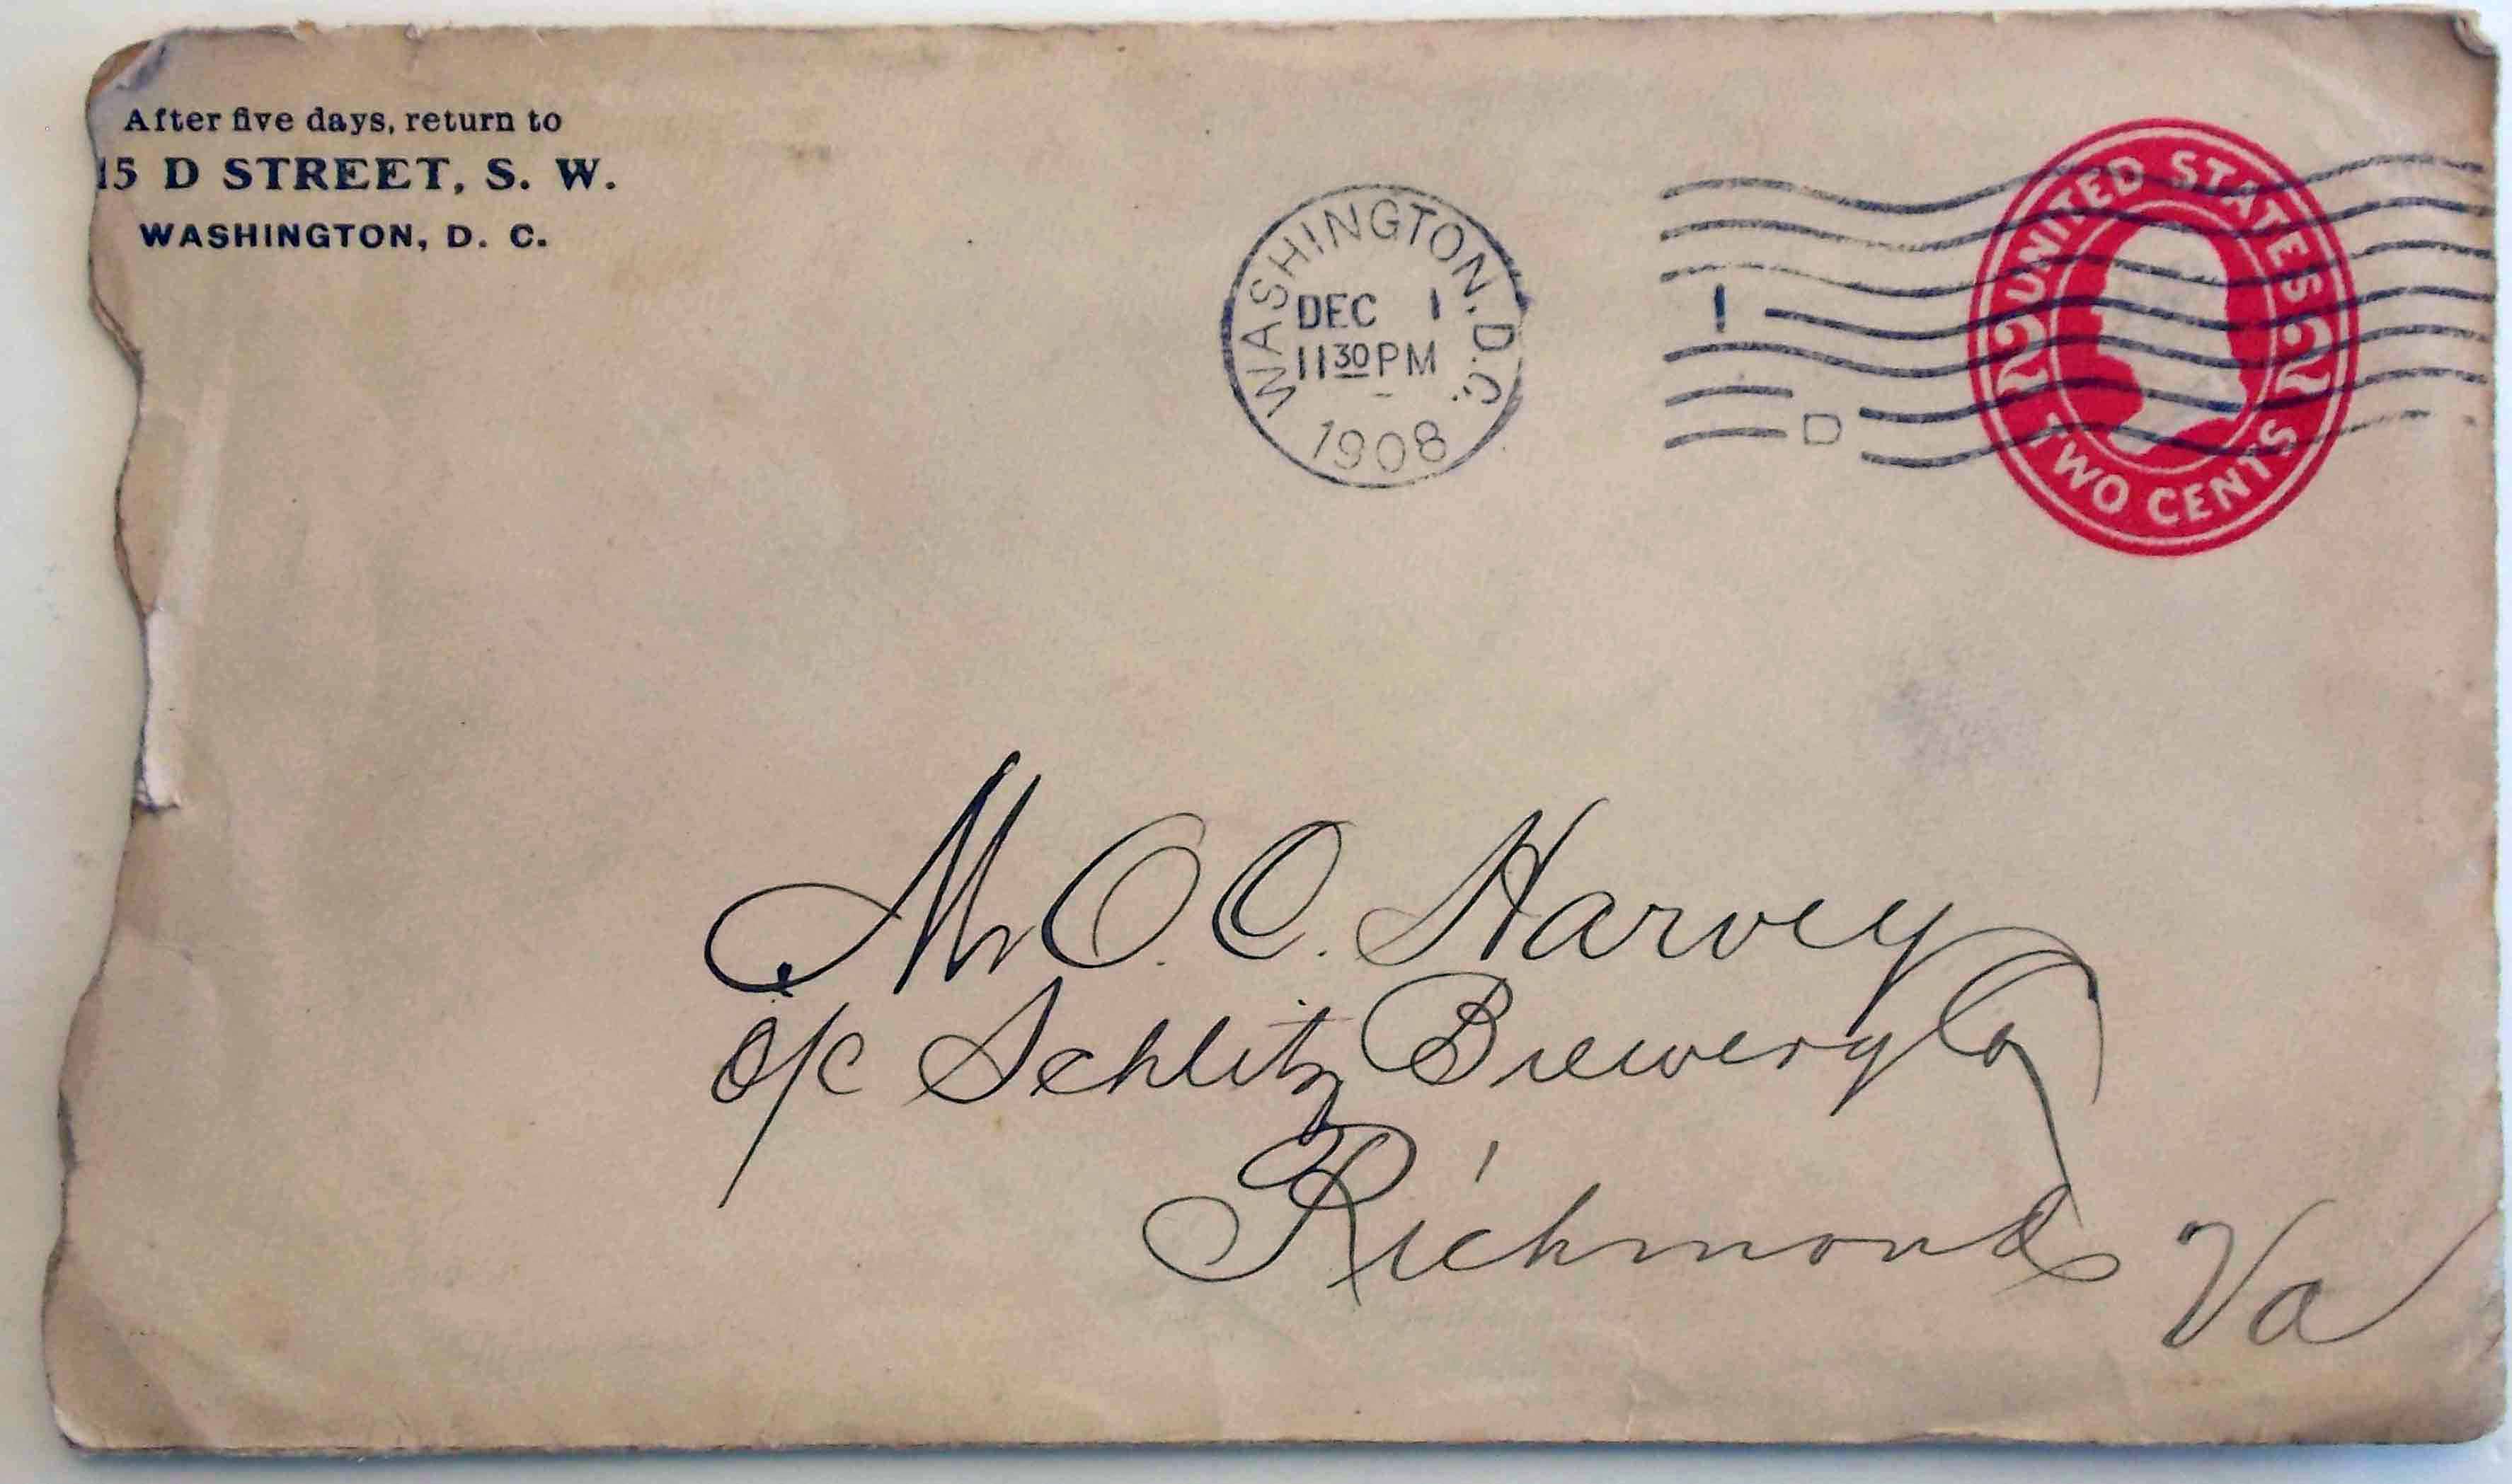 After five days, return to
15 D STREET, S. W.
WASHINGTON, D. C.
WASHINGTON, D.C.
DEC 1
11 30 PM
1908
1
D
UNITED STATES
2 2
TWO CENTS
Mr O. C. Harvey
o/c Schlitz Brewery Co
Richmond Va